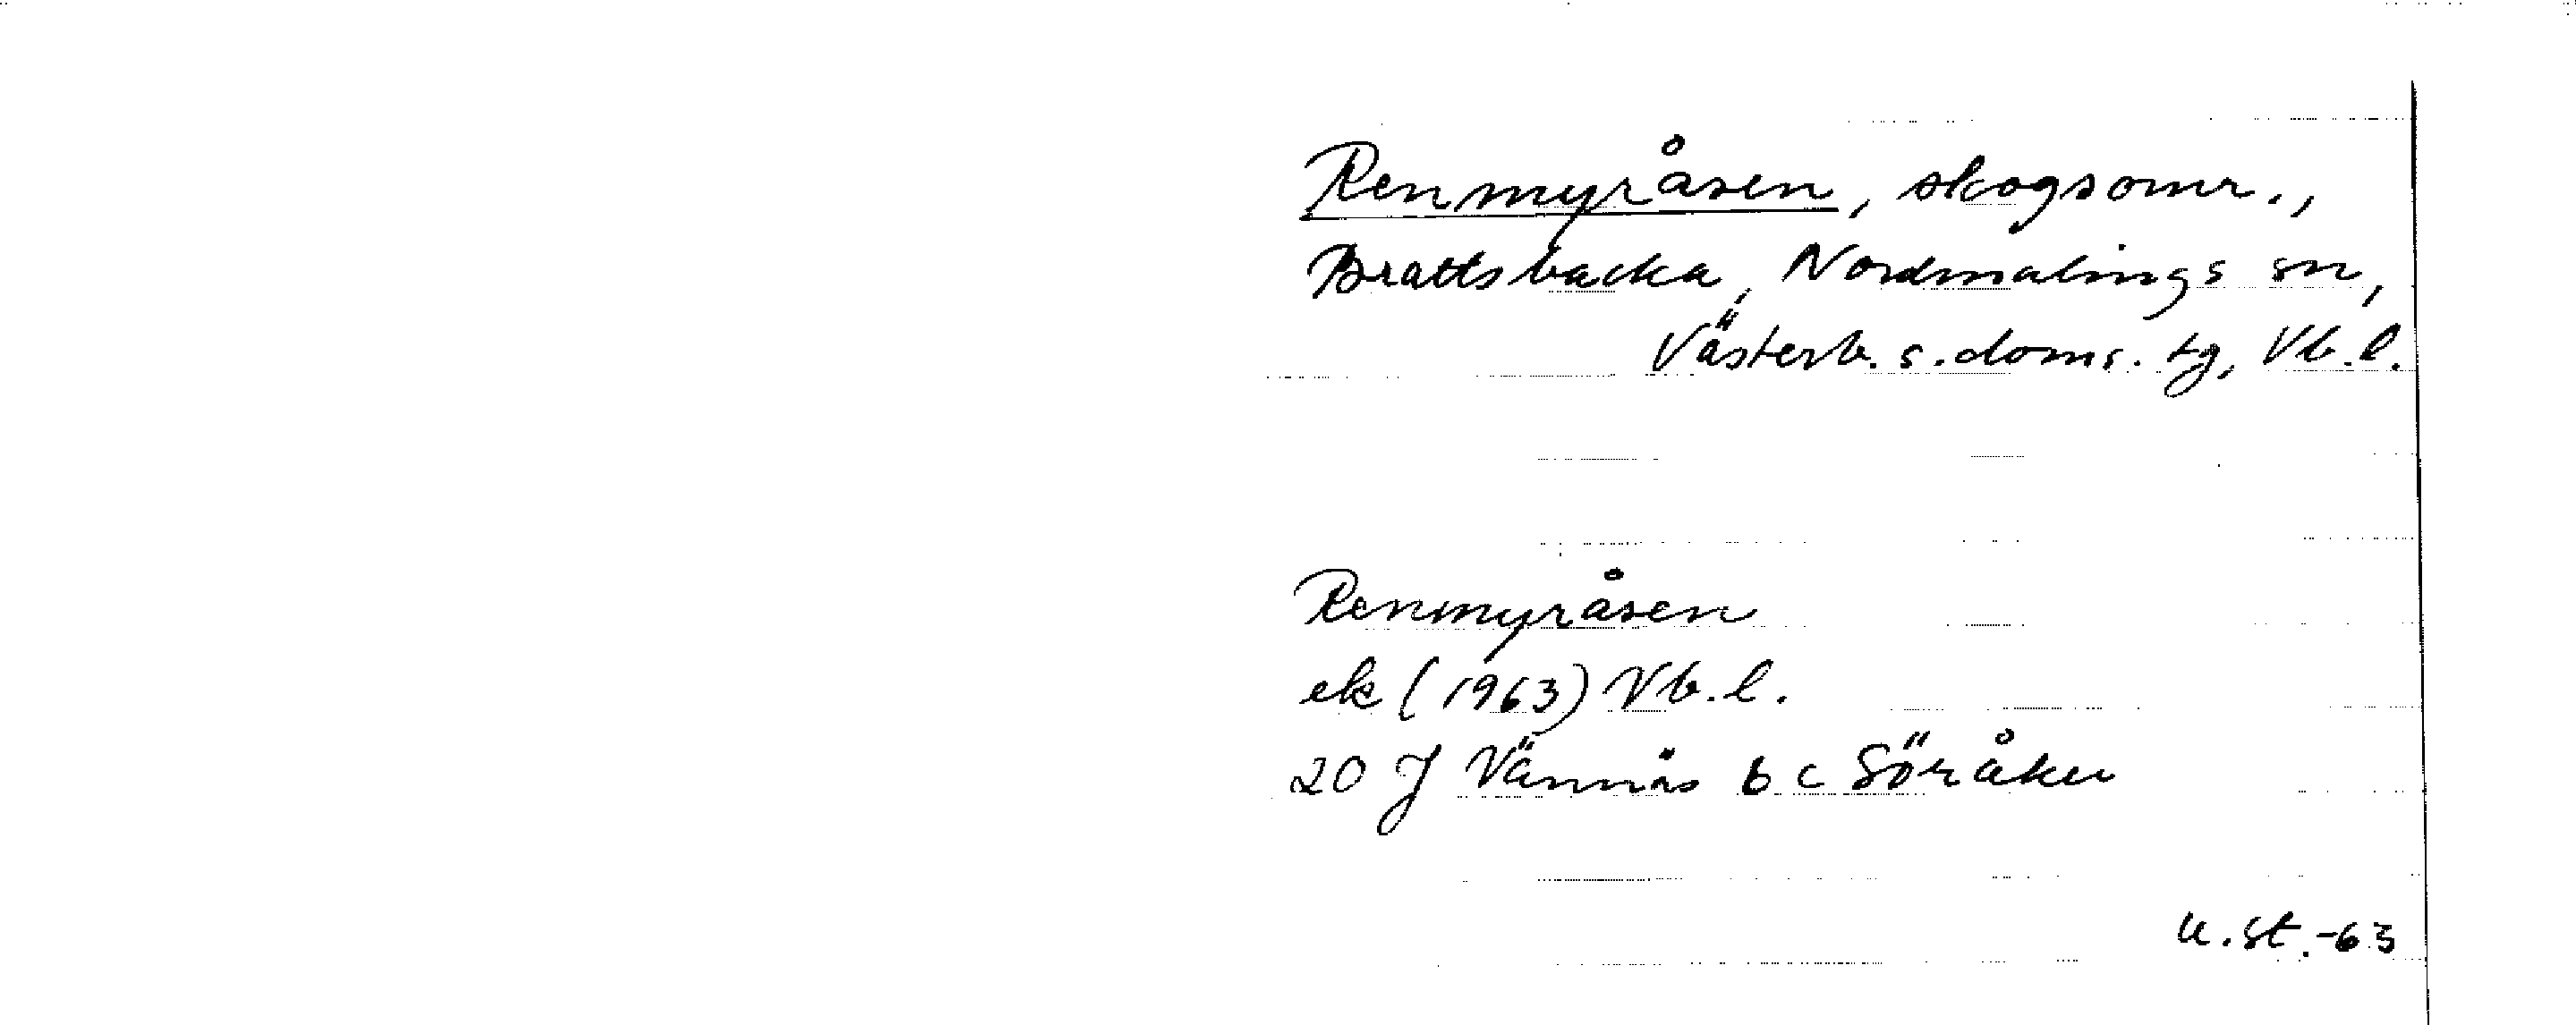 Renmyråsen, skogsomr.,
Brattsbacka, Nordmalings sn,
Västerb. s. doms. tg, Vb.l.
Renmyråsen
ek (1963) Vb.l.
20 J Vännäs b c Söråker
U.St.-63